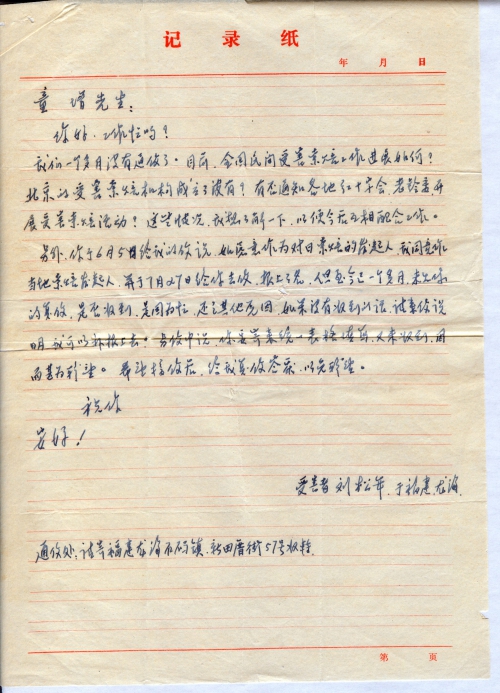 记录纸
年 月 日
童增先生:
你好,工作忙吗?
我们一个多月没有通信了。目前,全国民间受害索赔工作进展如何?
北京的受害索赔机构成立了没有?有否通知各地红十字会、老龄委开
展受害索赔活动?这些情况,我想了解一下,以便今后互相配合工作。
另外,你于6月5日给我的信说,如愿意作为对日索赔的发起人,我同意作
当地索赔发起人,并于7月27日给你去信,报上了名,但至今已一个多月,未见你
的复信,是否收到,是因为忙,还是其他原因,如果没有收到的话,请来信说
明,我可以补报上去。另信中说,你要寄来统一表格填写,又未收到,因
而甚为盼望。希望接信后,给我复信答案,以免盼望。
祝你
安好!
受害者 刘松年 于福建龙海
通信处:请寄福建龙海石码镇,新田厝街57号收转
第 页